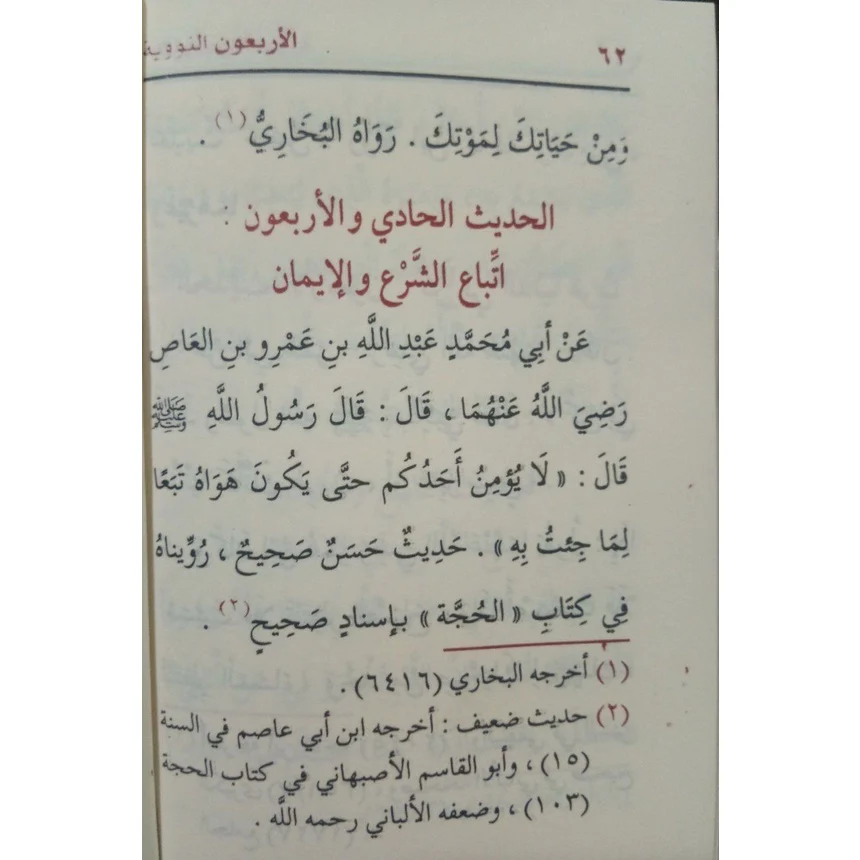 ٦٢ الأربعون النووية
وَمِنْ حَيَاتِكَ لِمَوْتِكَ . رَوَاهُ البُخَارِيُّ(١) .
الحديث الحادي والأربعون :
اتِّباع الشَّرْع والإيمان
عَنْ أبِي مُحَمَّدٍ عَبْدِ اللَّهِ بنِ عَمْرِو بنِ العَاصِ
رَضِيَ اللَّهُ عَنْهُمَا ، قَالَ : قَالَ رَسُولُ اللَّهِ ﷺ
قَالَ : « لَا يُؤمِنُ أَحَدُكُم حتَّى يَكُونَ هَوَاهُ تَبَعًا
لِمَا جِئتُ بِهِ » . حَدِيثٌ حَسَنٌ صَحِيحٌ ، رُوِّيناهُ
فِي كِتَابِ « الحُجَّة » بـإسنادٍ صَحِيحٍ(٢) .
(١) أخرجه البخاري (٦٤١٦) .
(٢) حديث ضعيف : أخرجه ابن أبي عاصم في السنة
(١٥) ، وأبو القاسم الأصبهاني في كتاب الحجة
(١٠٣) ، وضعفه الألباني رحمه اللَّه .